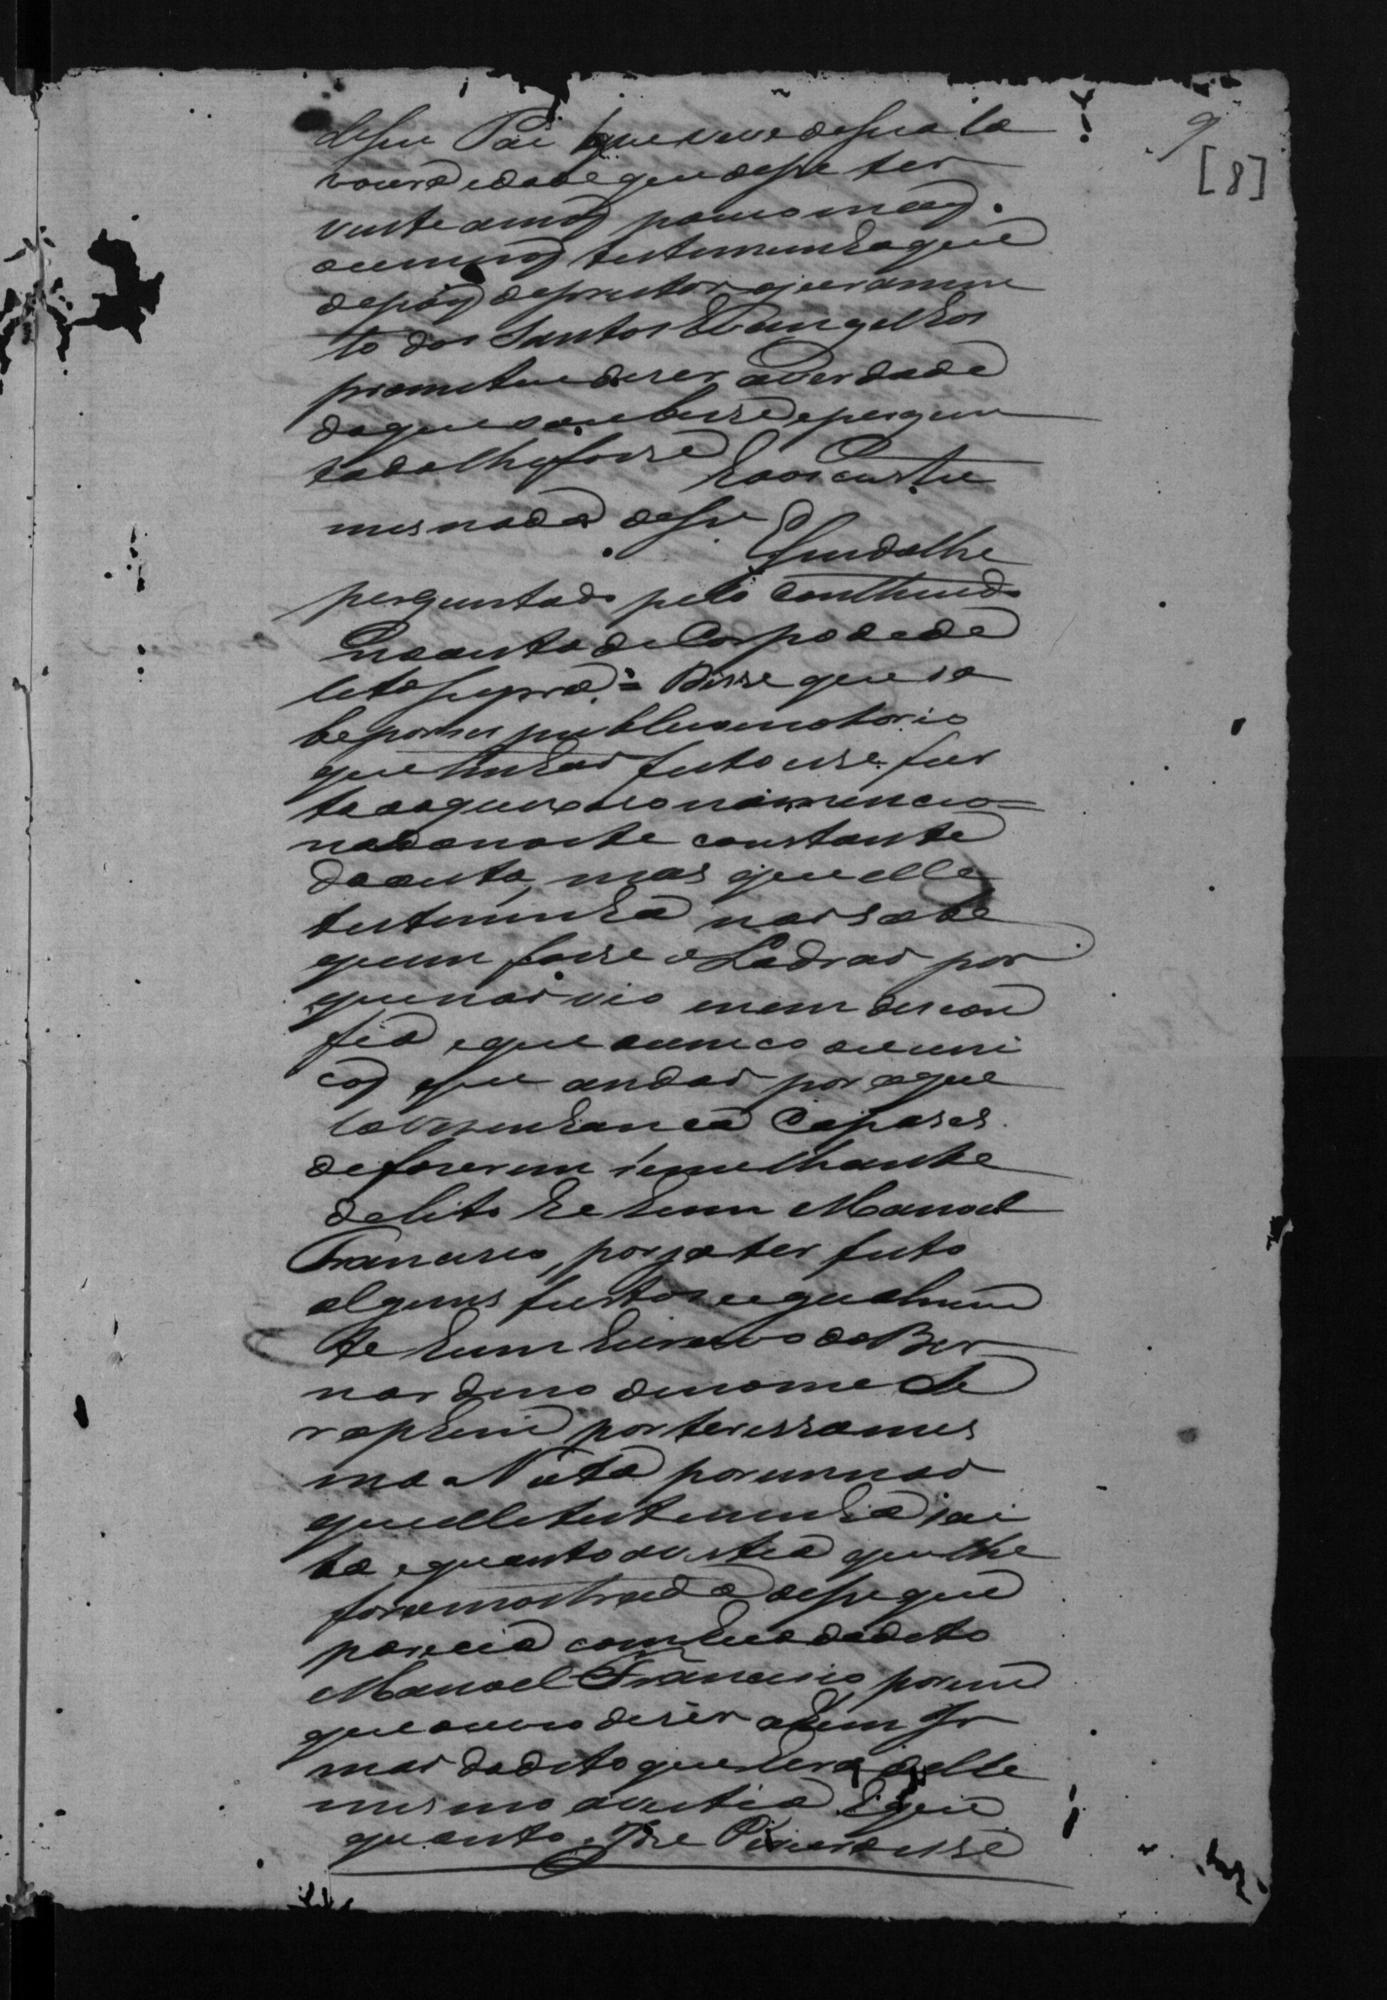 9
[8]
deseu Pai que vive desua la
voura eidade que disse ter
vinte annos pouco mais
oumenos testemunha que
depois deprestar ojuramen
to dos Santos Evangelhos
prometeu dizer averdade
doque soubesse epergun
tado lhefosse Eaos custu
mes nada disse Esendolhe
perguntado pelo contheudo
Noauto de Corpo dede
lito supra = Disse que sa
be porser publico enotorio
que tinhão feito esse fur
to
nada noite constante
doauto, mas que elle
testemunha não sabe
quem fosse o Ladrão por
que não vio enem descon
fia, eque ounico ouuni
cos que andão por aque
la vesinhança Capazes
defazerem semelhante
delito he hum Manoel
Francisco, por ja ter feito
alguns furtos eigualmen
te hum Escravo de Ber
nardino denome Se
raphim por ter essa mes
ma Nota porem não
que elle testemunha sai
ba, equanto avestia que lhe
fora mostrada disse que
parecia com hua dodito
Manoel Francisco, porem
que ouvio dizer ahum Ir
mão dodito que hera delle
mesmo avestia Eque
quanto